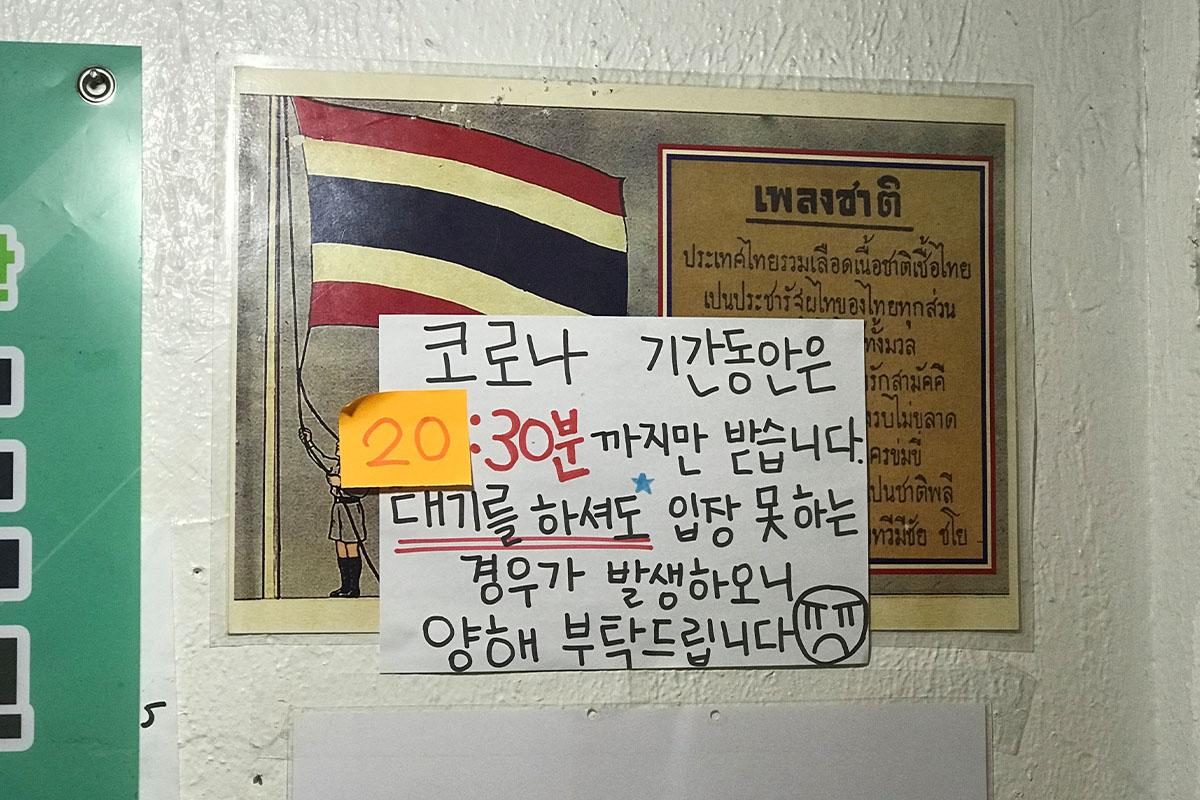 เพลงชาติ
ประเทศไทยรวมเลือดเนื้อชาติเชื้อไทย
เปนประชารัฐผไทของไทยทุกส่วน
ทั้งมวล
รักสามัคคี
รบไม่ขลาด
ครข่มขี่
ปนชาติพลี
ทวีมีชัย ชโย
코로나 기간동안은
20:30분 까지만 받습니다.
대기를 하셔도 입장 못 하는
경우가 발생하오니
양해 부탁드립니다 ㅠㅠ
5